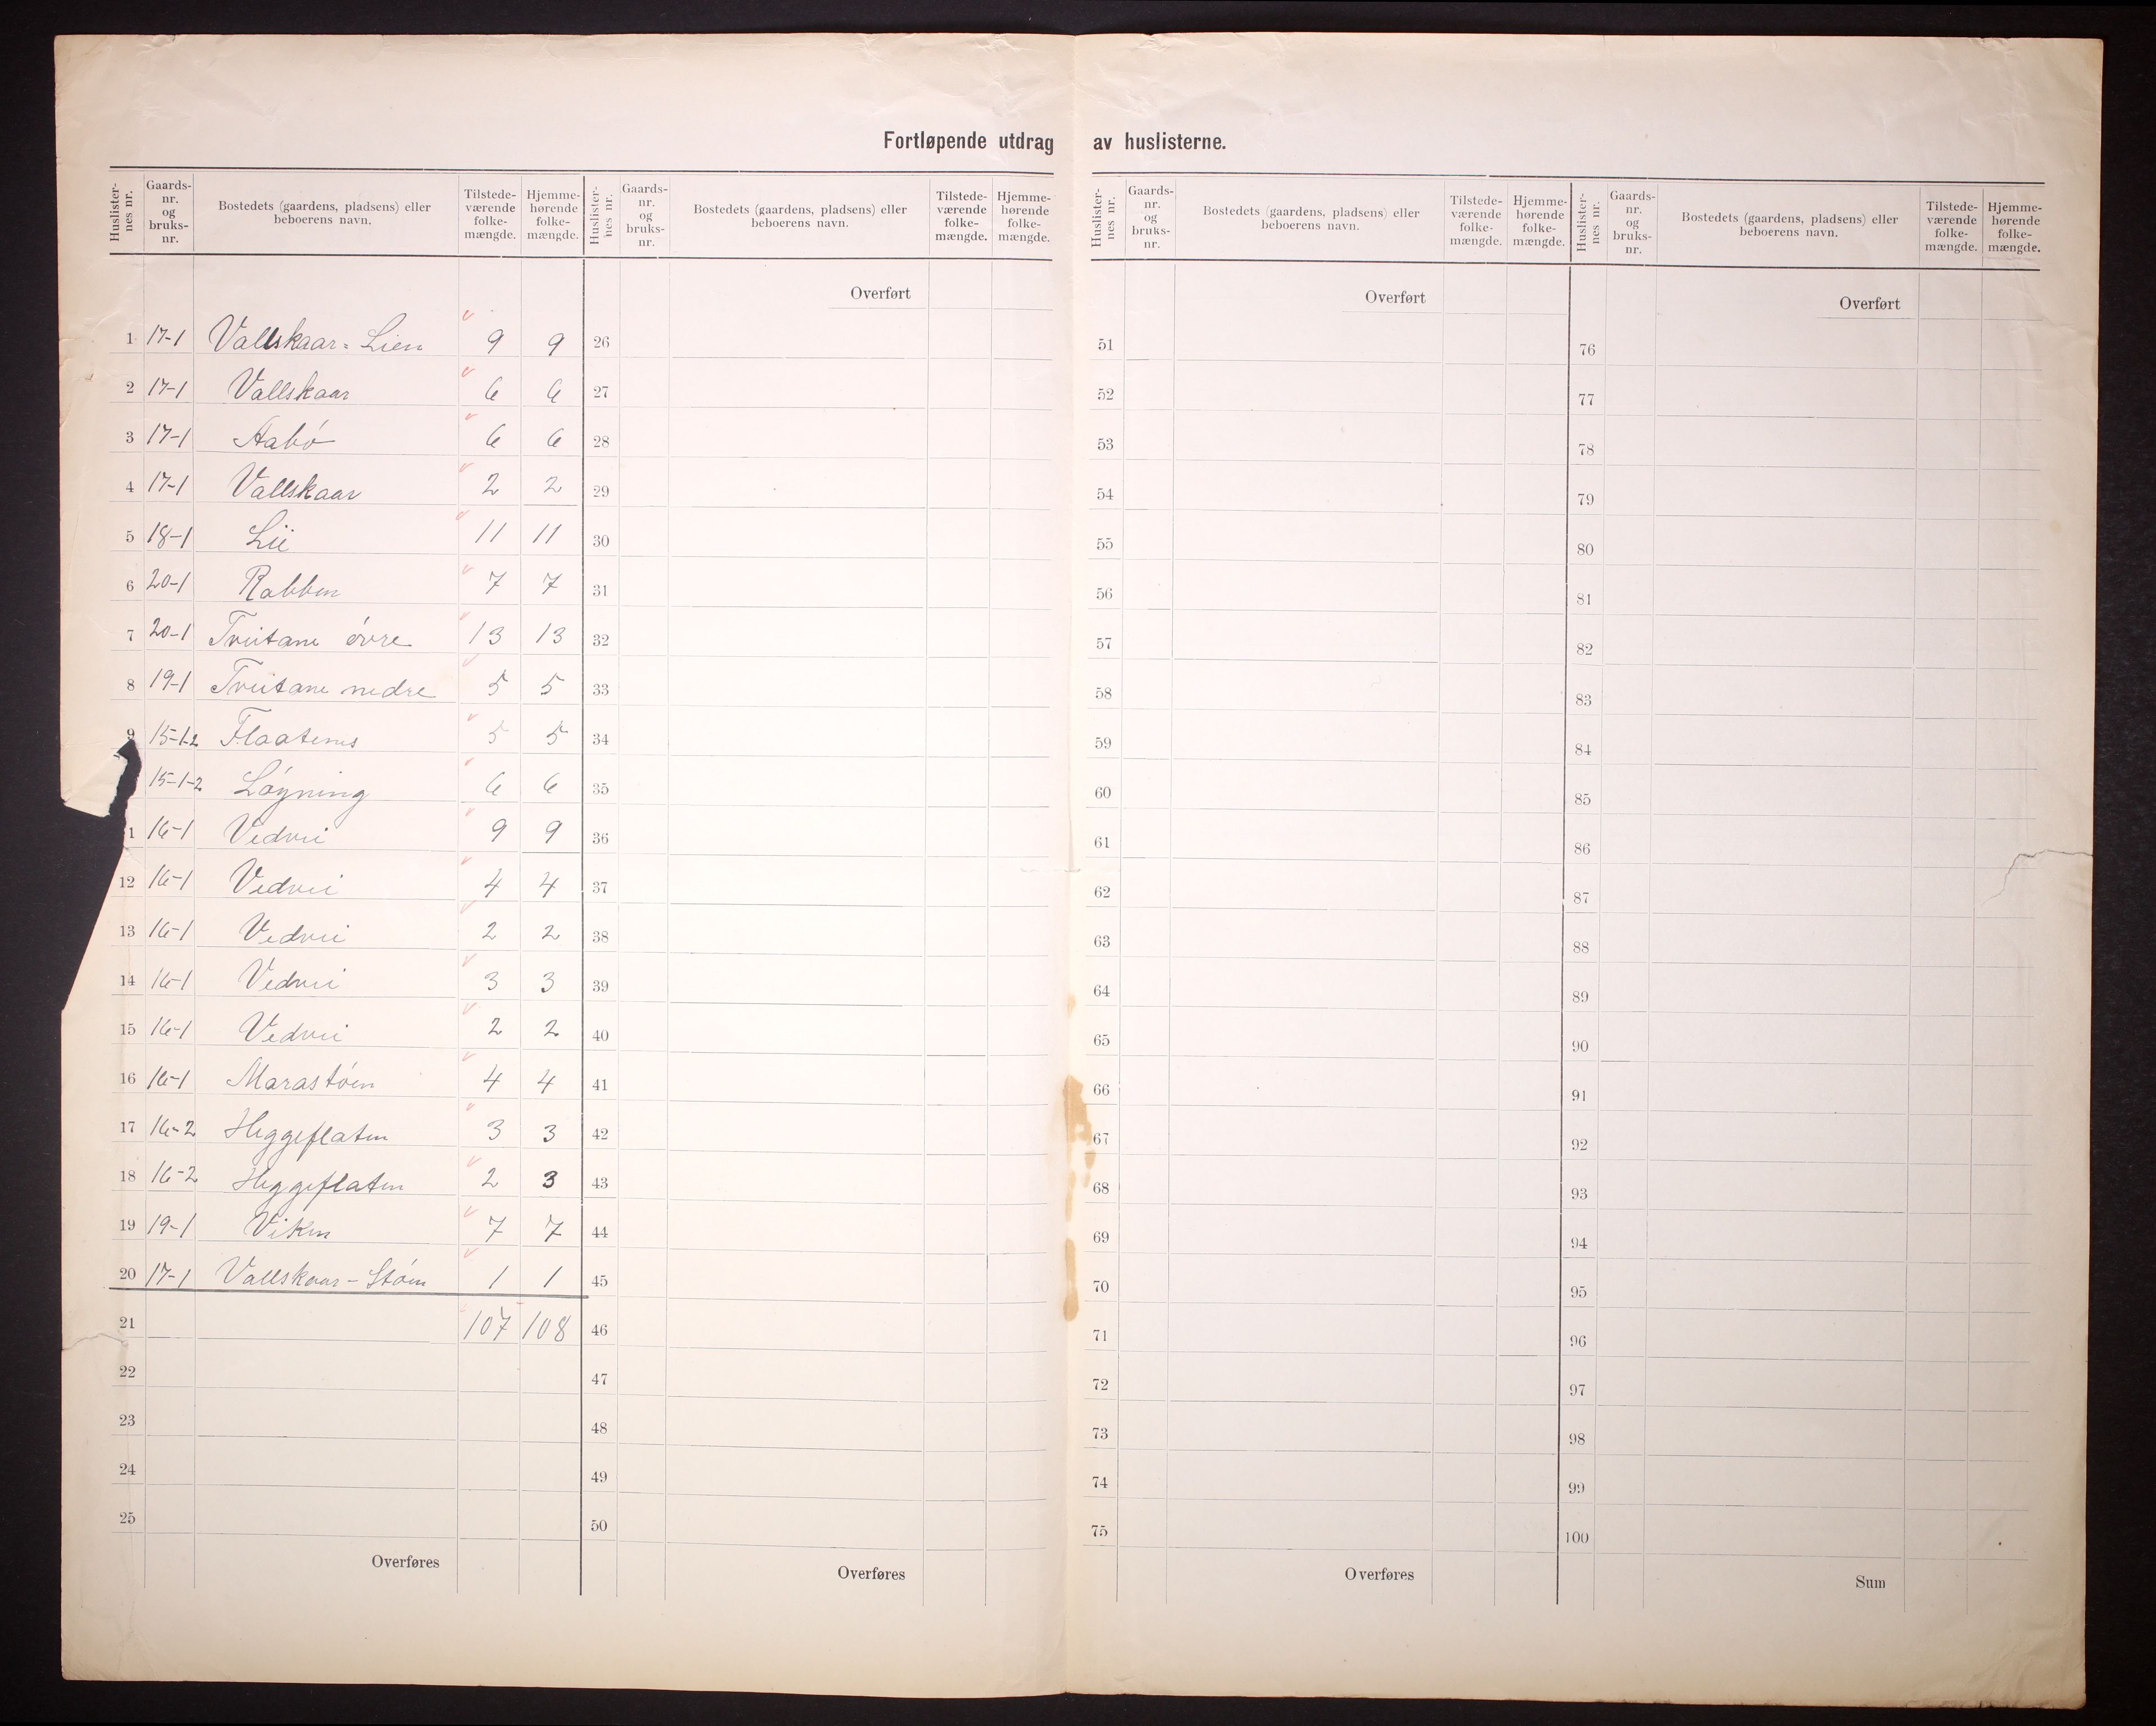 Fortløpende utdrag av huslisterne.
Huslister-nes nr. Gaards-nr. og bruks-nr. Bostedets (gaardens, pladsens) eller beboerens navn. Tilstede-værende folke-mængde. Hjemme-hørende folke-mængde.
1 17-1 Vallskaar-Lien 9 9
2 17-1 Vallskaar 6 6
3 17-1 Aabö 6 6
4 17-1 Vallskaar 2 2
5 18-1 Lii 11 11
6 20-1 Rabben 7 7
7 20-1 Tveitane övre 13 13
8 19-1 Tveitane nedre 5 5
9 15-1-2 Flaatenes 5 5
15-1-2 Löyning 6 6
1 16-1 Vedvii 9 9
12 16-1 Vedvii 4 4
13 16-1 Vedvii 2 2
14 16-1 Vedvii 3 3
15 16-1 Vedvii 2 2
16 16-1 Marastöen 4 4
17 16-2 Heggeflaten 3 3
18 16-2 Heggeflaten 2 3
19 19-1 Viken 7 7
20 17-1 Vallskaar-Stöen 1 1
21 107 108
22
23
24
25
Overføres
Huslister-nes nr. Gaards-nr. og bruks-nr. Bostedets (gaardens, pladsens) eller beboerens navn. Tilstede-værende folke-mængde. Hjemme-hørende folke-mængde.
Overført
26
27
28
29
30
31
32
33
34
35
36
37
38
39
40
41
42
43
44
45
46
47
48
49
50
Overføres
Huslister-nes nr. Gaards-nr. og bruks-nr. Bostedets (gaardens, pladsens) eller beboerens navn. Tilstede-værende folke-mængde. Hjemme-hørende folke-mængde.
Overført
51
52
53
54
55
56
57
58
59
60
61
62
63
64
65
66
67
68
69
70
71
72
73
74
75
Overføres
Huslister-nes nr. Gaards-nr. og bruks-nr. Bostedets (gaardens, pladsens) eller beboerens navn. Tilstede-værende folke-mængde. Hjemme-hørende folke-mængde.
Overført
76
77
78
79
80
81
82
83
84
85
86
87
88
89
90
91
92
93
94
95
96
97
98
99
100
Sum